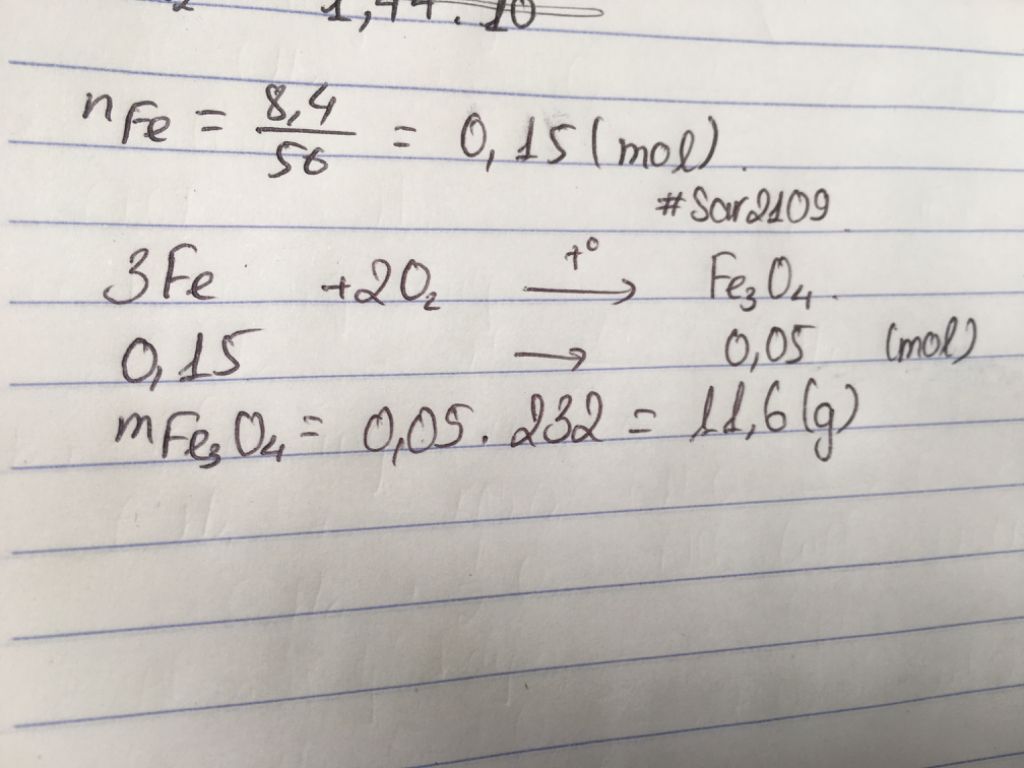 1,44.10
nFe = 8,4/56 = 0,15 (mol).
#Sar2109
3Fe +2O₂ —t°→ Fe₃O₄.
0,15 → 0,05 (mol)
mFe₃O₄ = 0,05 . 232 = 11,6 (g)